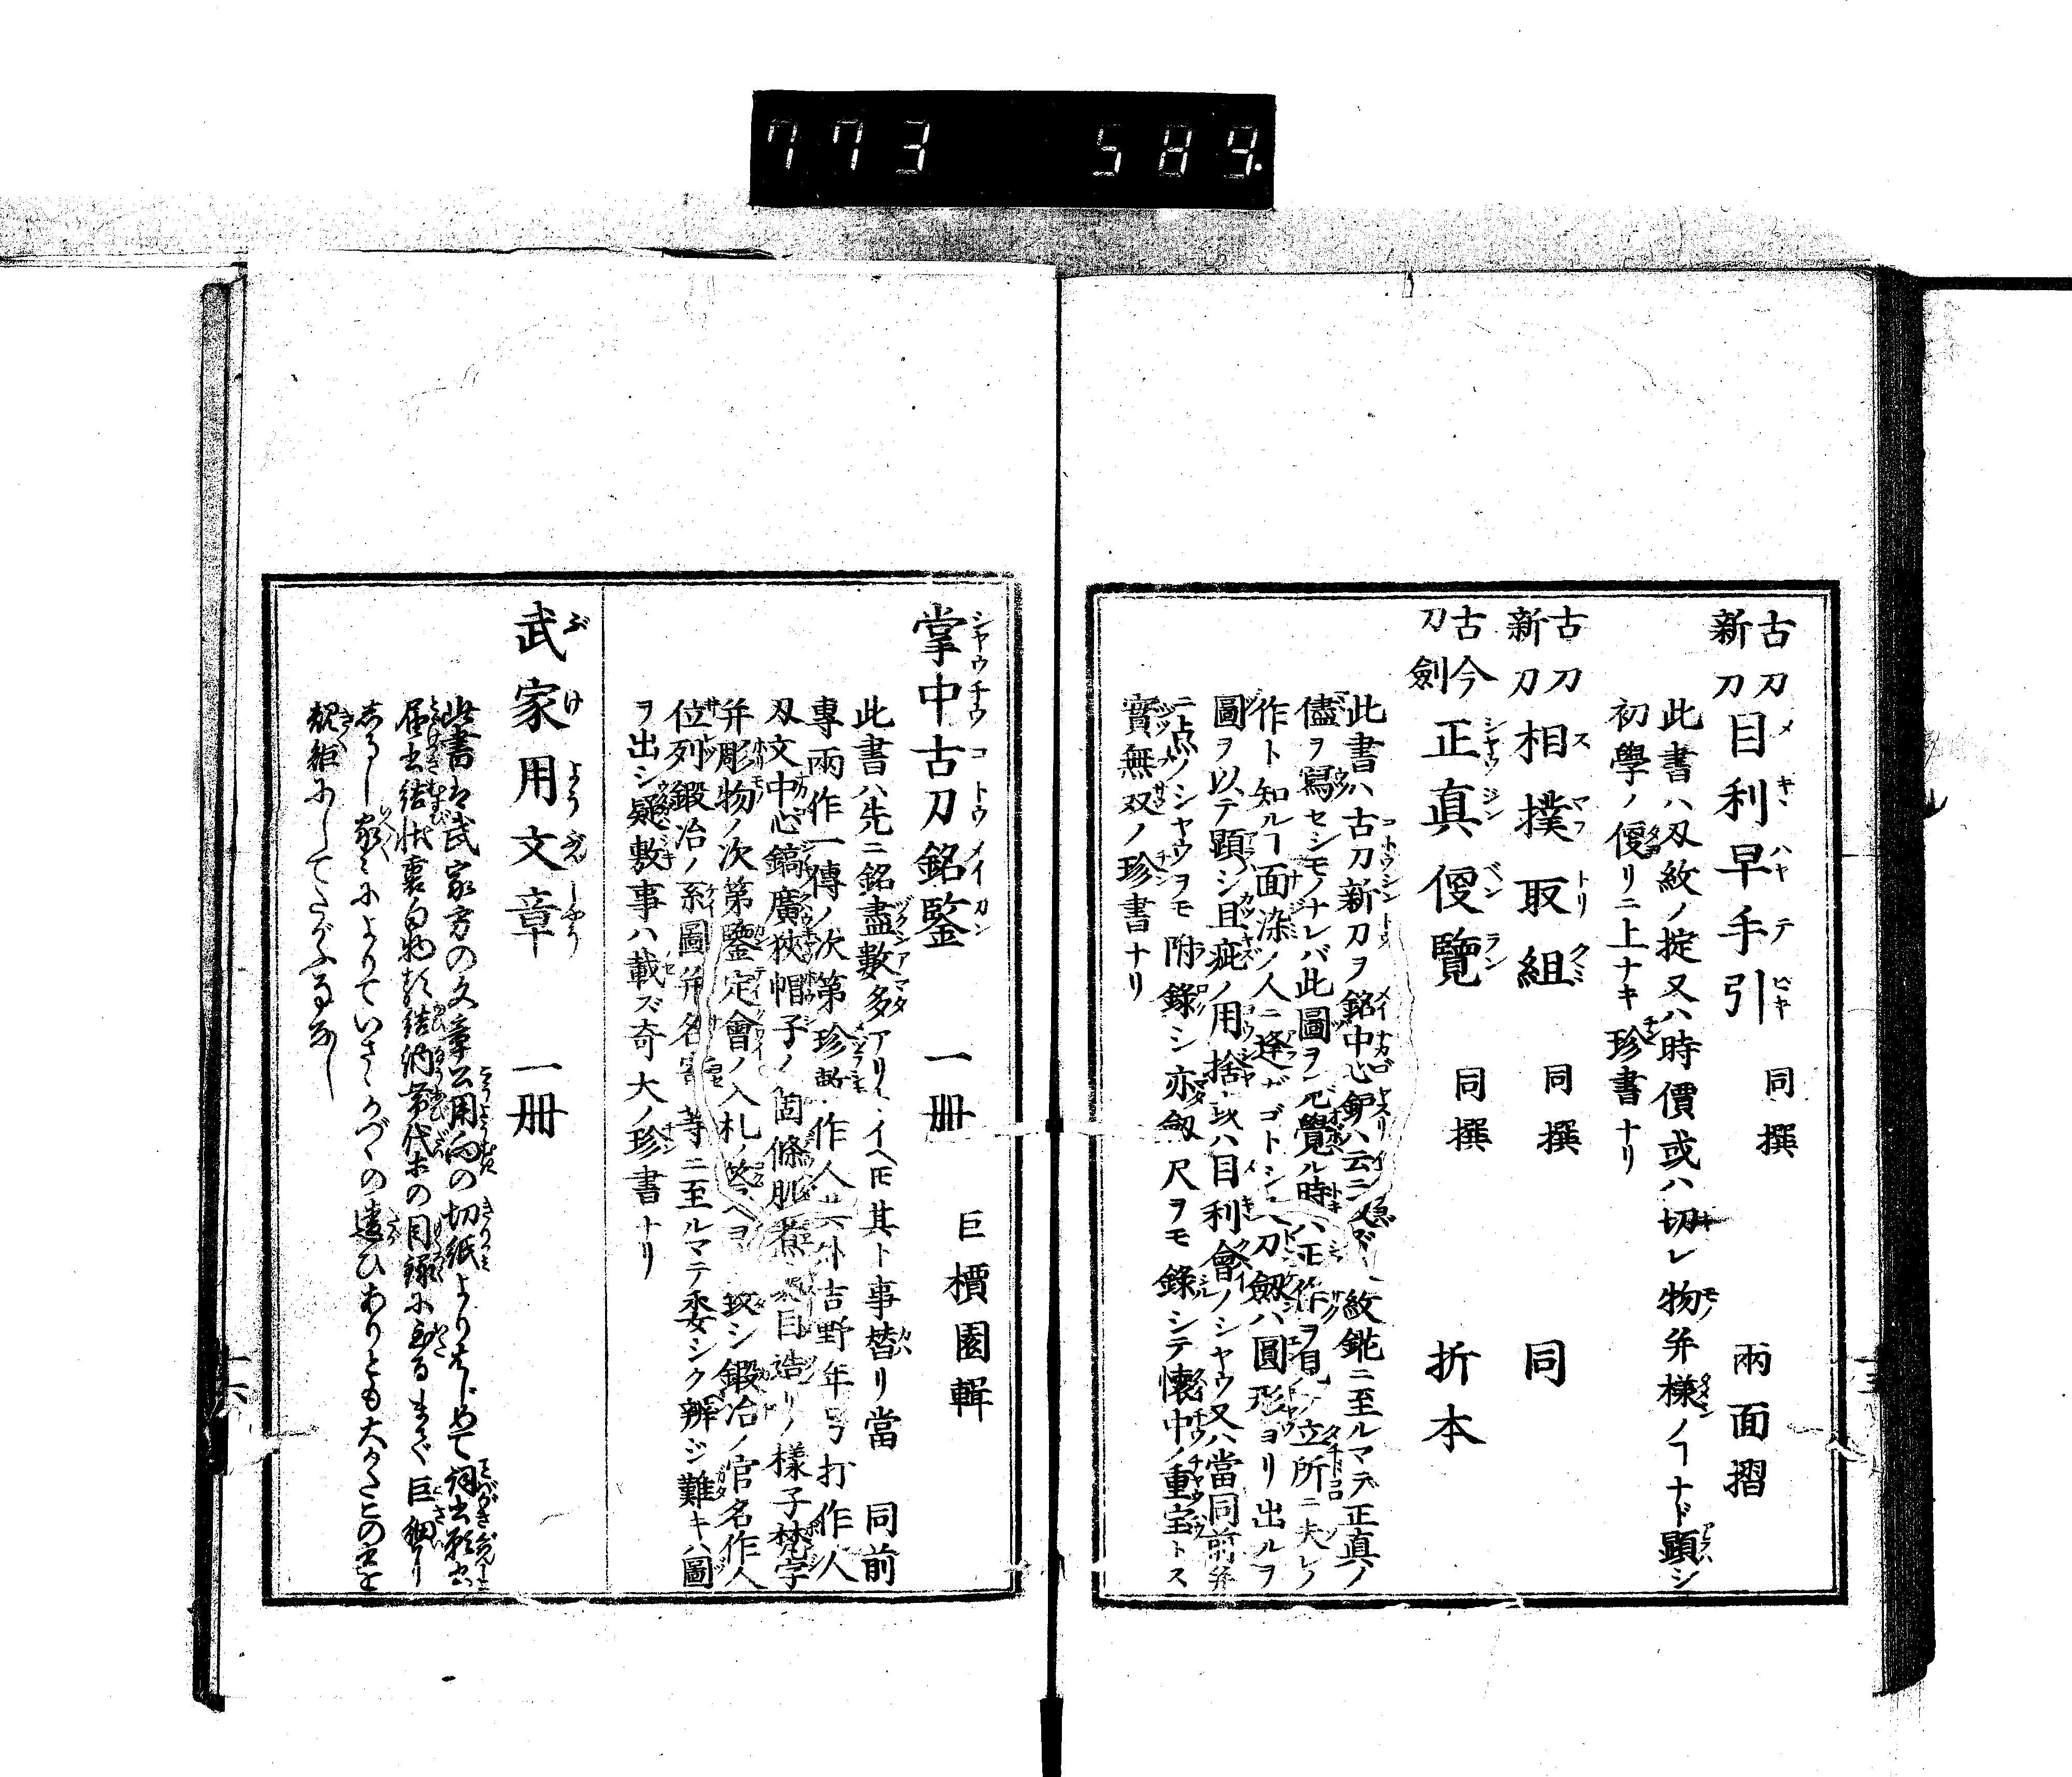 773 589
古刀新刀目利早手引 同撰 兩面摺
此書ハ刄紋ノ掟又ハ時價或ハ切レ物并様ノヿナド顕シ
初學ノ便リニ上ナキ珍書ナリ
古刀新刀相撲取組 同撰 同
古今刀劍正真便覽 同撰 折本
此書ハ古刀新刀ヲ銘中心鈩ハ云ニ及バズ紋鉇ニ至ルマデ正真ノ
儘ヲ寫セシモノナレバ此圖ヲ見覺ル時ハ正作ヲ見ル立所ニ夫レノ
作ト知ルヿ面染ノ人ニ逢ガゴトシ刀劔ハ圓形ヨリ出ルヲ
圖ヲ以テ顕シ且疵ノ用捨或ハ目利會ノシヤウ又ハ當同前并
ニ点ノシヤウヲモ附錄シ亦劔尺ヲモ錄シテ懐中ノ重宝トス
實無双ノ珍書ナリ
掌中古刀銘鑒 一冊 巨櫝園輯
此書ハ先ニ銘盡數多アリトイヘ𪜈其ト事替リ當同前
專兩作一傳ノ次第珍敷作人其外吉野年号打作人
刄文中心鎬廣狹帽子ノ箇條肌荒目造リノ様子梵字
并彫物ノ次第鑒定會ノ入札ノ答ヘヲ致シ鍛冶ノ官名作人
位列鍛冶ノ系圖并名寄等ニ至ルマテ委シク辨ジ難キハ圖
ヲ出シ疑敷事ハ載ズ奇大ノ珍書ナリ
武家用文章 一冊
此書は武家方の文章公用向の切紙よりはじめて詞書願書
届書結状裏白物於結納帯代ホの目録に至るまで巨細に
しるし家々によりていさゝかづゝの違ひありとも大かたこの書を
規矩にしてたがふ事なし
十六